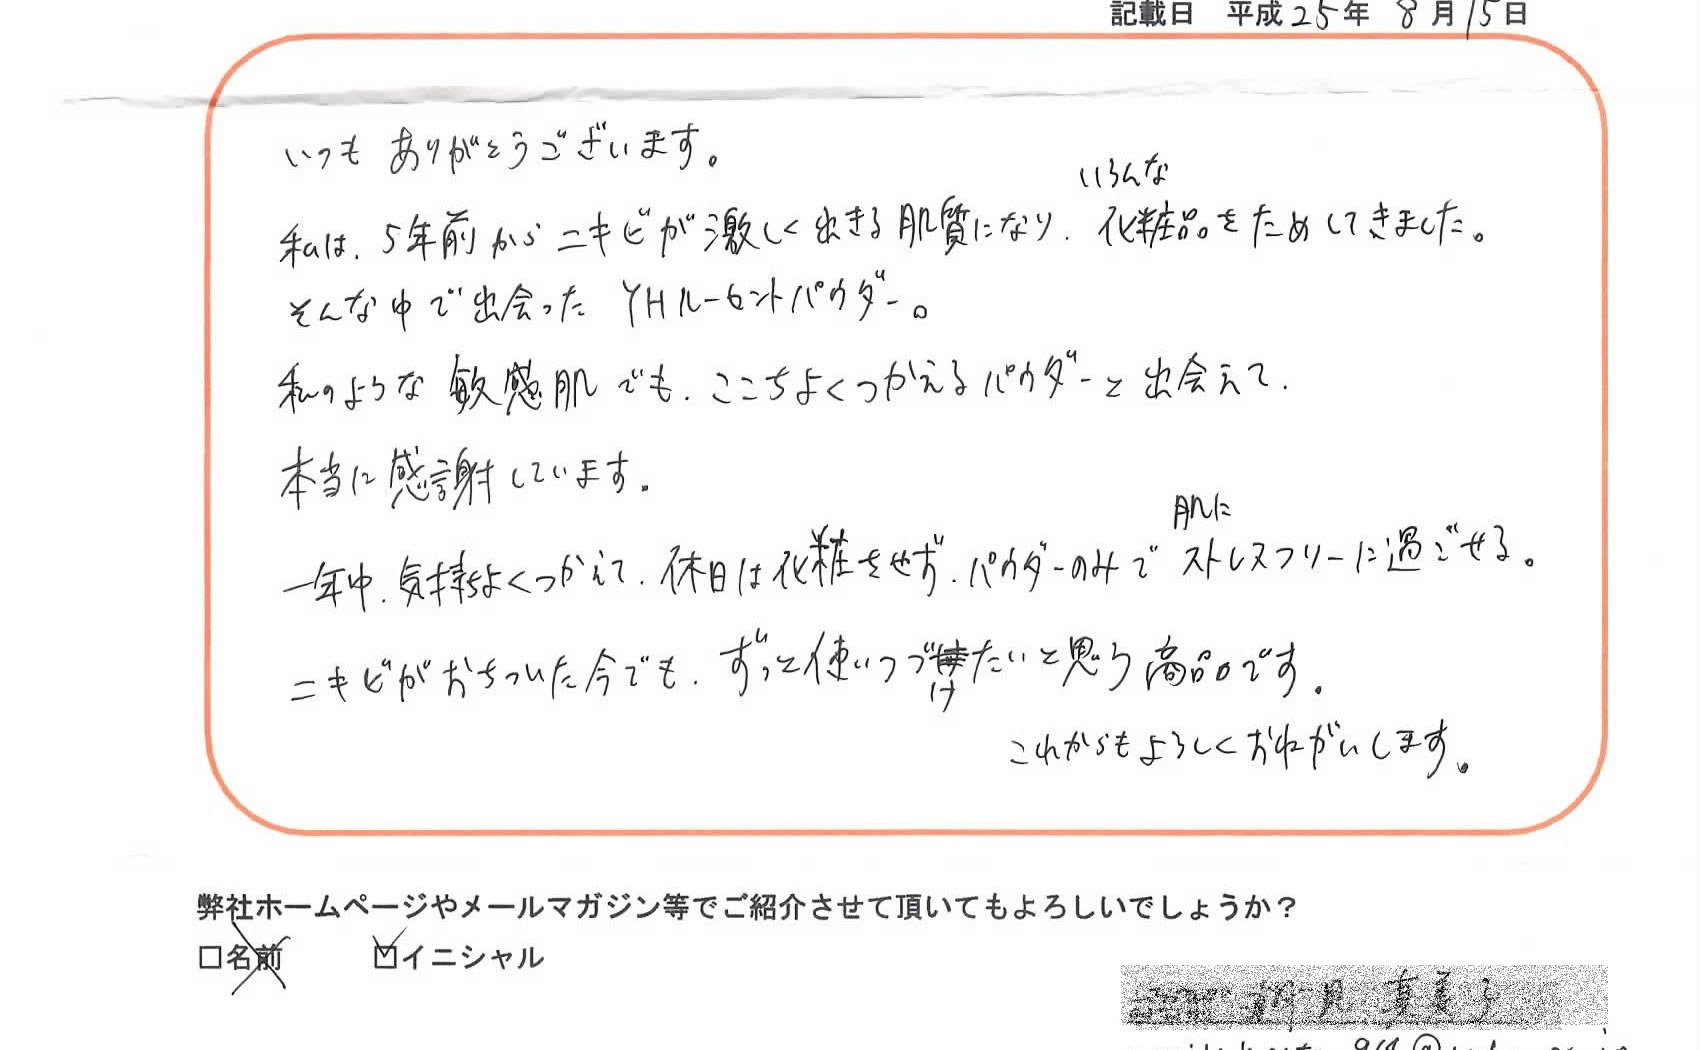 記載日 平成25年 8月15日
いつも ありがとうございます。
私は、5年前からニキビが激しく出きる肌質になり、いろんな化粧品をためしてきました。
そんな中で出会った YHルーセントパウダー。
私のような敏感肌でも、ここちよくつかえるパウダーと出会えて、
本当に感謝しています。
一年中、気持ちよくつかえて、休日は化粧をせず、パウダーのみで肌にストレスフリーに過ごせる。
ニキビがおちついた今でも、ずっと使いつづけたいと思う商品です。
これからもよろしくおねがいします。
弊社ホームページやメールマガジン等でご紹介させて頂いてもよろしいでしょうか？
□名前 ☑イニシャル